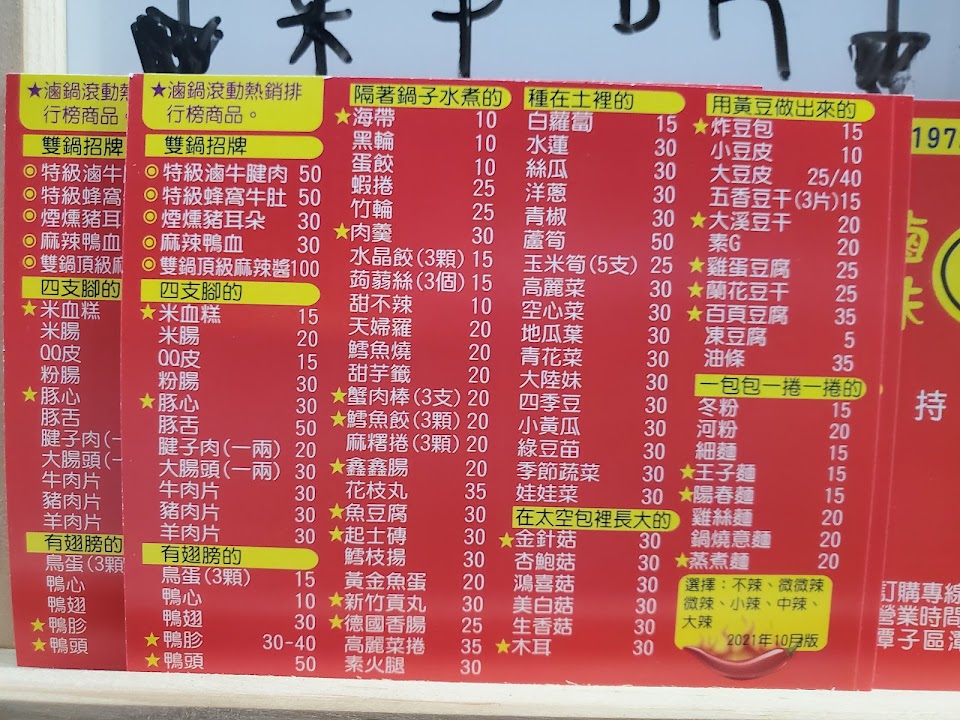 ★滷鍋滾動熱
行榜商品。
雙鍋招牌
◎特級滷牛
◎特級蜂窩
◎煙燻豬耳
◎麻辣鴨血
◎雙鍋頂級麻
四支腳的
★米血糕
米腸
QQ皮
粉腸
★豚心
豚舌
腱子肉(一
大腸頭(一
牛肉片
豬肉片
羊肉片
有翅膀的
鳥蛋(3顆
鴨心
鴨翅
★鴨胗
★鴨頭
★滷鍋滾動熱銷排
行榜商品。
雙鍋招牌
◎特級滷牛腱肉 50
◎特級蜂窩牛肚 50
◎煙燻豬耳朵 30
◎麻辣鴨血 30
◎雙鍋頂級麻辣醬100
四支腳的
★米血糕 15
米腸 20
QQ皮 15
粉腸 30
★豚心 30
豚舌 50
腱子肉(一兩) 20
大腸頭(一兩) 30
牛肉片 30
豬肉片 30
羊肉片 30
有翅膀的
鳥蛋(3顆) 15
鴨心 10
鴨翅 30
★鴨胗 30-40
★鴨頭 50
隔著鍋子水煮的
★海帶 10
黑輪 10
蛋餃 10
蝦捲 25
竹輪 25
★肉羹 30
水晶餃(3顆) 15
蒟蒻絲(3個) 15
甜不辣 10
天婦羅 20
鱈魚燒 20
甜芋籤 20
★蟹肉棒(3支) 20
★鱈魚餃(3顆) 20
麻糬捲(3顆) 20
★鑫鑫腸 20
花枝丸 35
★魚豆腐 30
★起士磚 30
鱈枝揚 30
黃金魚蛋 20
★新竹貢丸 30
★德國香腸 25
高麗菜捲 35
素火腿 30
種在土裡的
白蘿蔔 15
水蓮 30
絲瓜 30
洋蔥 30
青椒 30
蘆筍 50
玉米筍(5支) 25
高麗菜 30
空心菜 30
地瓜葉 30
青花菜 30
大陸妹 30
四季豆 30
小黃瓜 30
綠豆苗 30
季節蔬菜 30
娃娃菜 30
在太空包裡長大的
★金針菇 30
杏鮑菇 30
鴻喜菇 30
美白菇 30
生香菇 30
★木耳 30
用黃豆做出來的
★炸豆包 15
小豆皮 10
大豆皮 25/40
五香豆干(3片)15
★大溪豆干 20
素G 20
★雞蛋豆腐 25
★蘭花豆干 25
★百頁豆腐 35
凍豆腐 5
油條 35
一包包一捲一捲的
冬粉 15
河粉 20
細麵 15
★王子麵 15
★陽春麵 15
雞絲麵 20
鍋燒意麵 20
★蒸煮麵 20
選擇：不辣、微微辣
微辣、小辣、中辣、
大辣
2021年10月版
197
滷
味
持
訂購專線
營業時間
潭子區潭